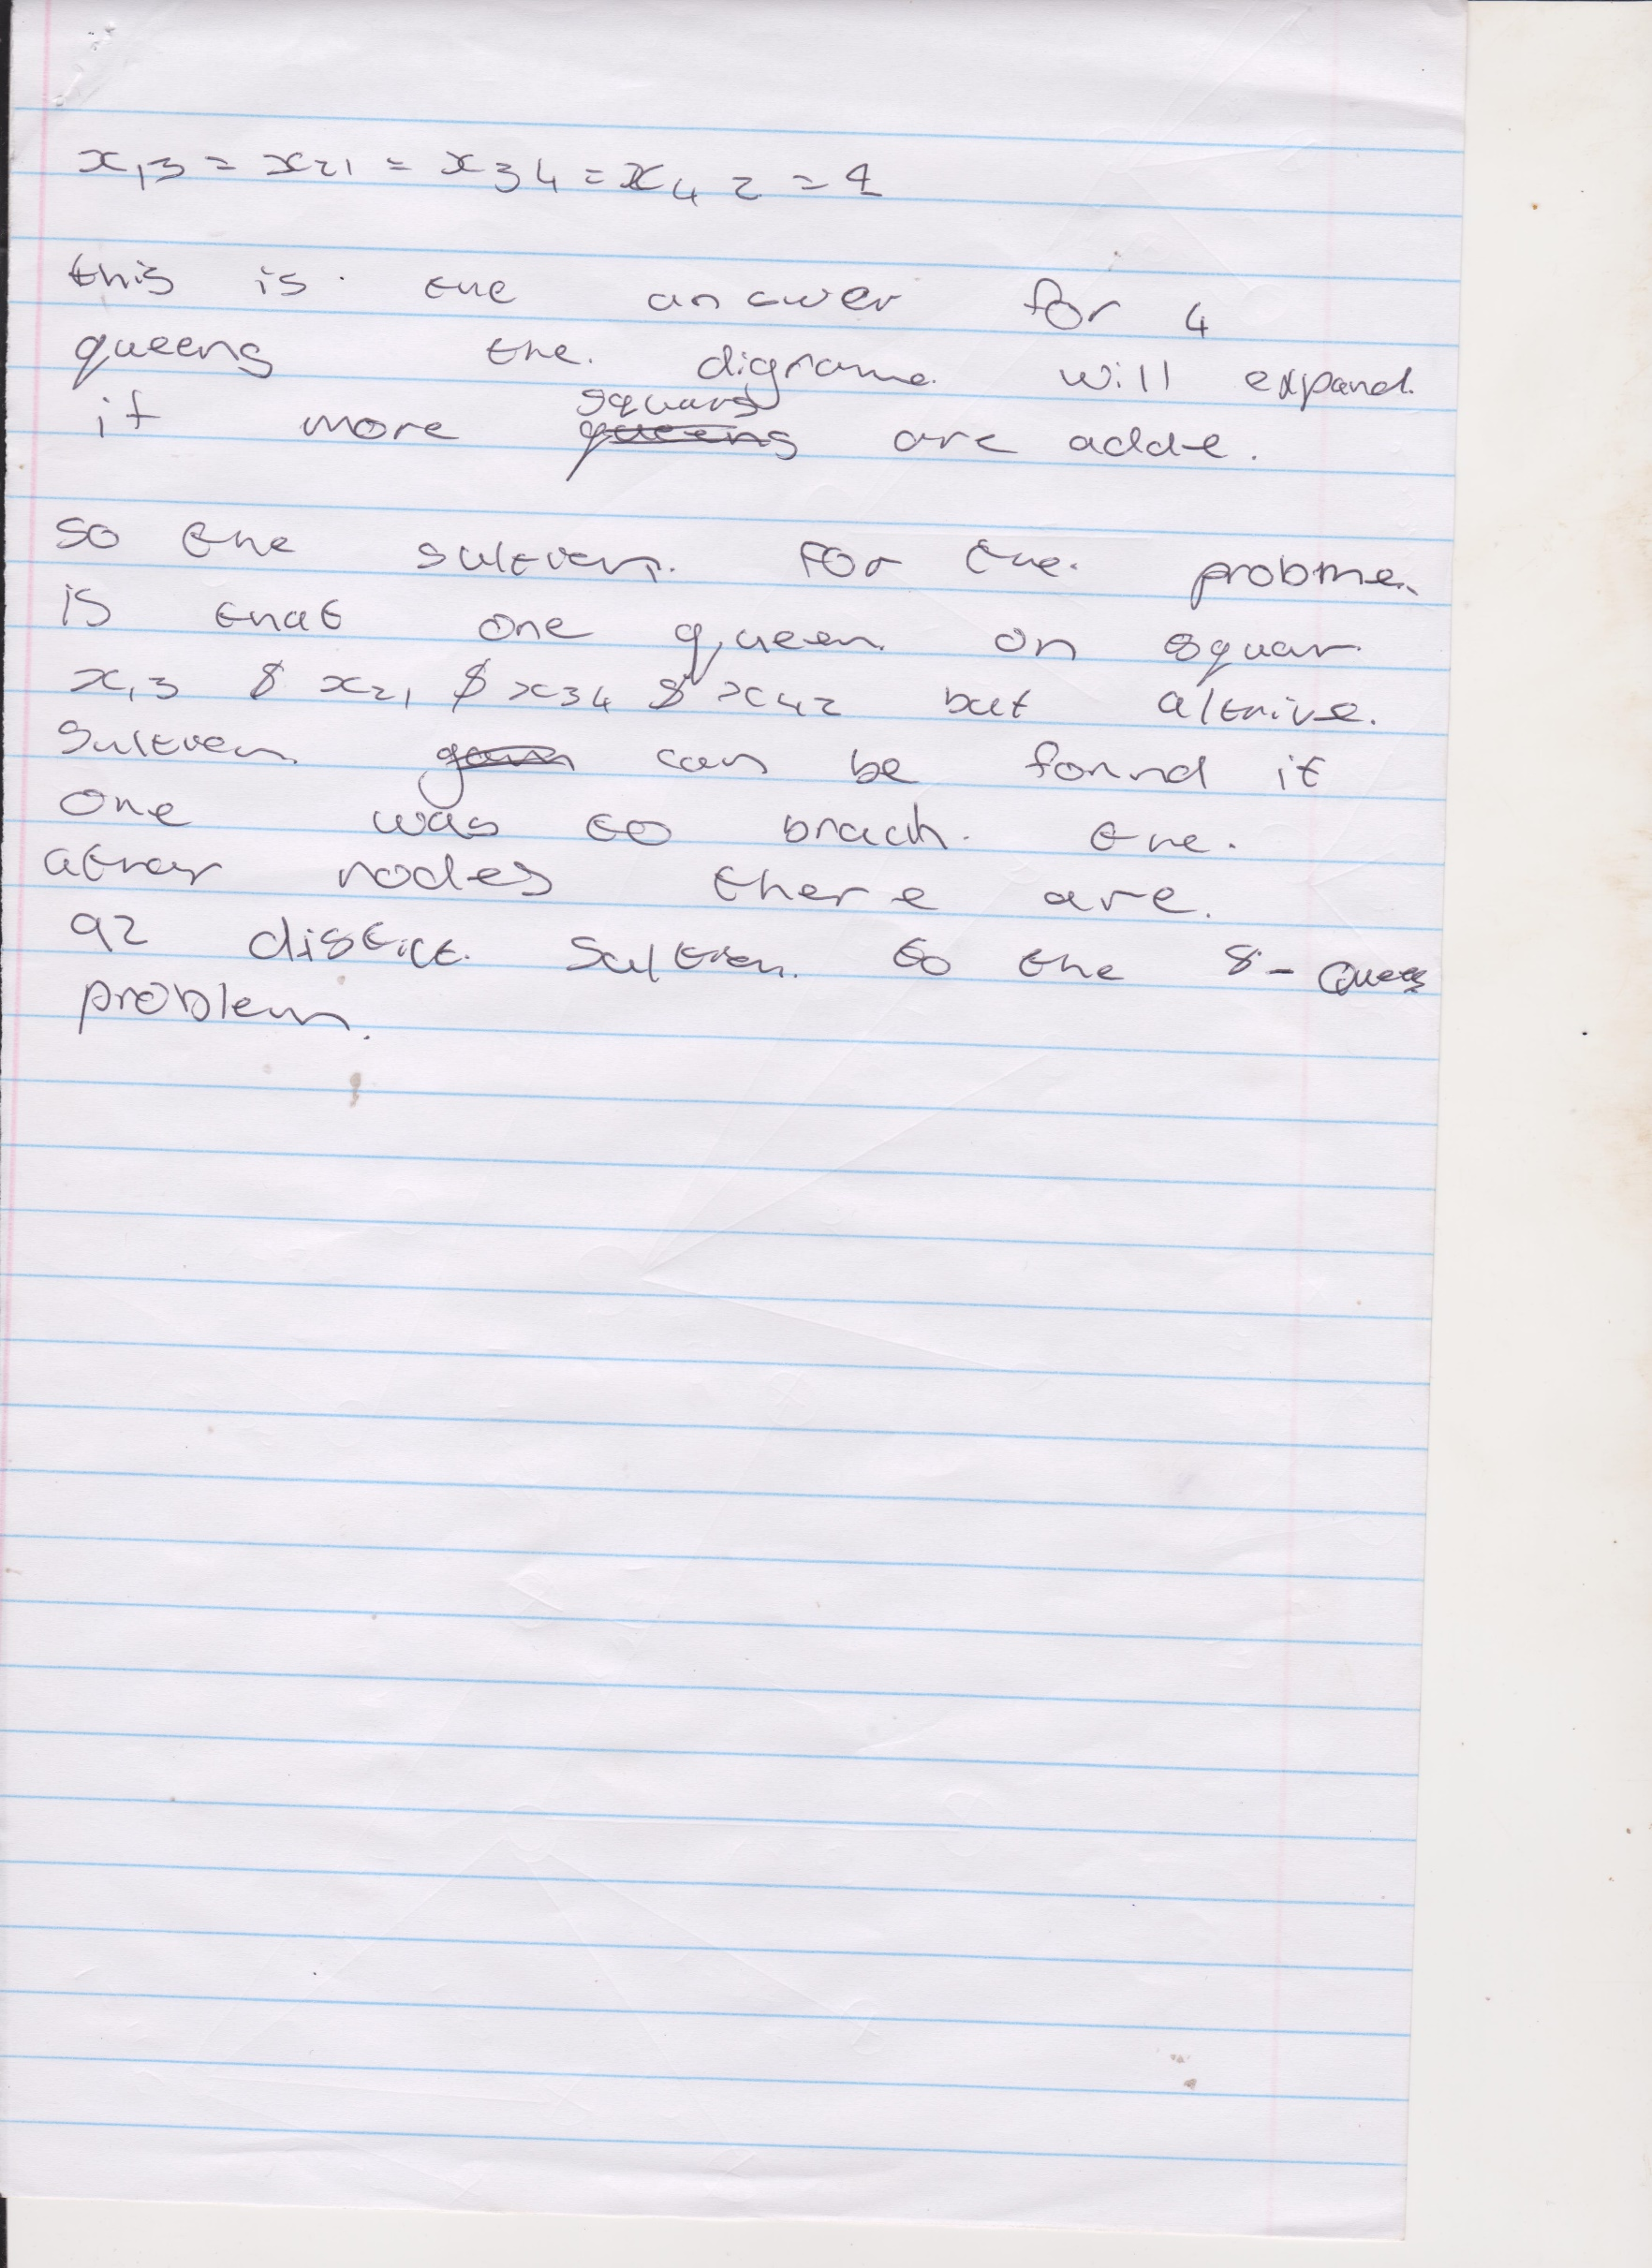 x13 = x21 = x34 = x42 = 1
this is the answer for 4
queens the digrame will expand
if more squars are adde.
so the sultven for the probme
is that one queen on squar
x13 & x21 & x34 & x42 but altnive.
sultven can be fornd if
one was to brach the.
ather nodes there are.
92 distict sultven to the 8-Queens
problem.